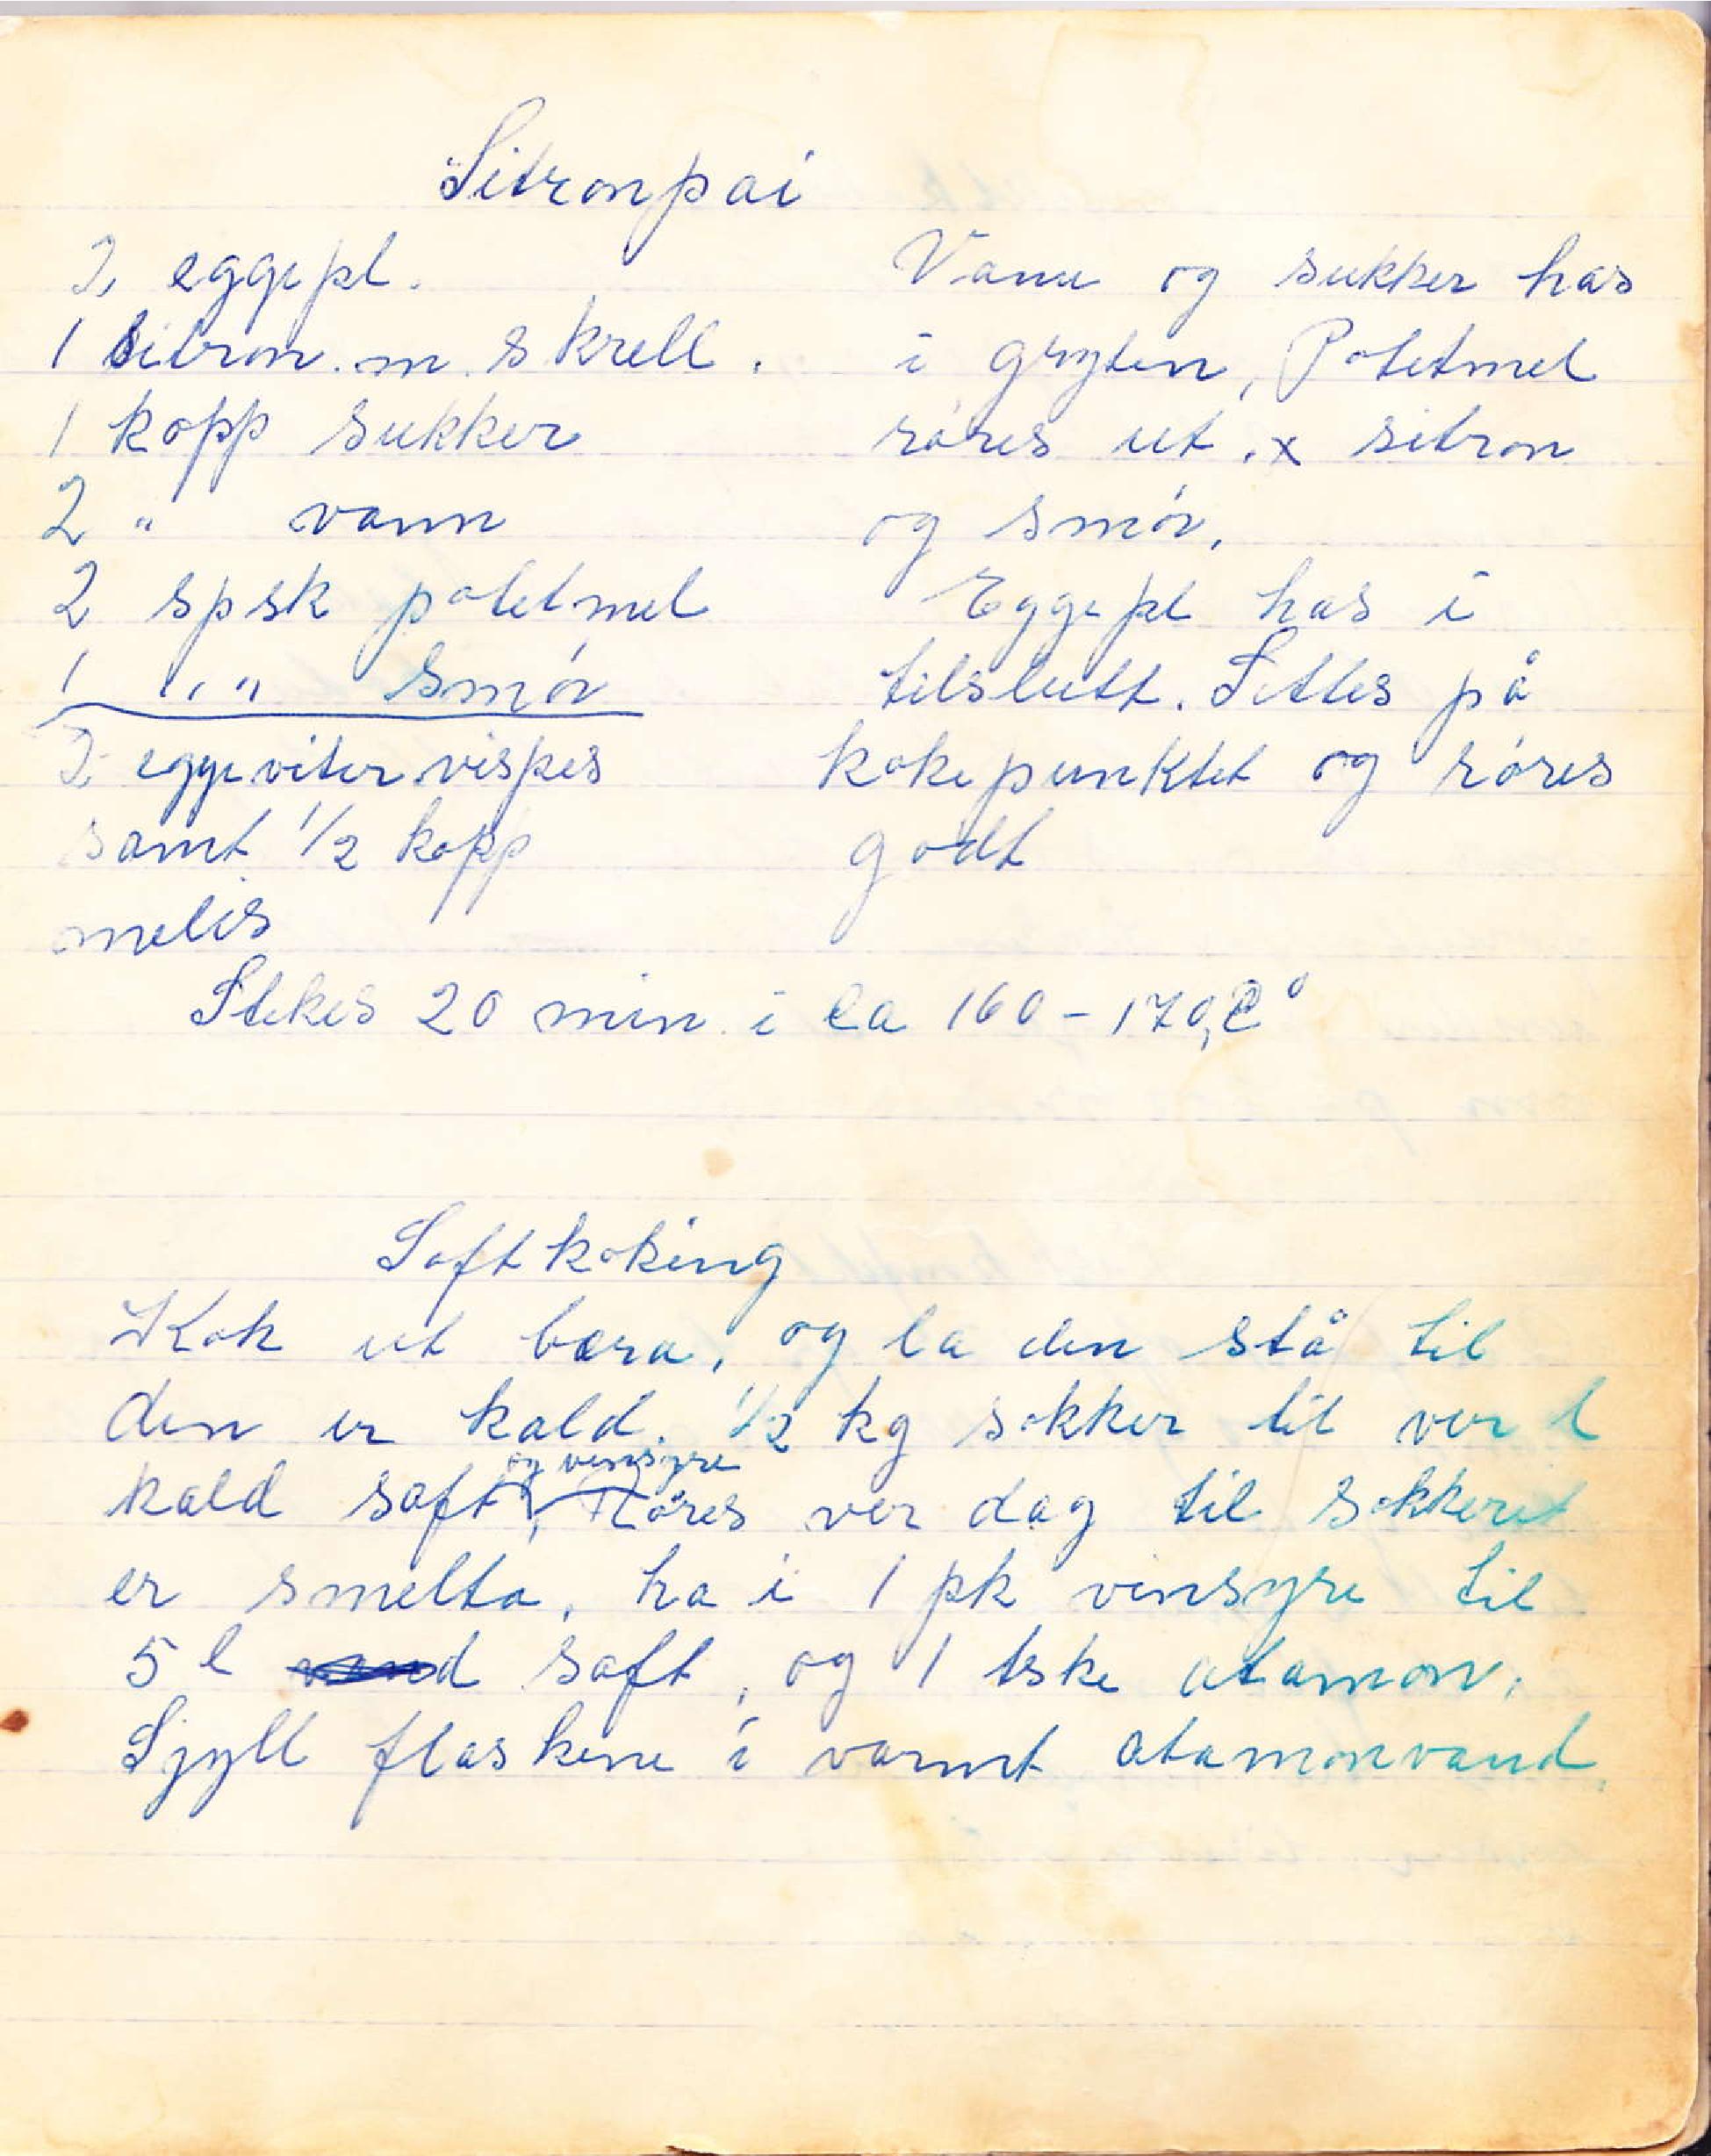 Sitronpai
eggepl.
1 sitron. m. skrell.
1 kopp sukker
2 " vann
2 spsk potetmel
1 " " smór
eggeviter vispes
samt 1/2 kopp
melis
Vann og sukker has
i gryten, Potetmel
róres ut. x sitron
og smór.
Eggepl has i
tilslutt. Settes på
kokepunktet og róres
godt
Stekes 20 min. i ca 160 - 170, C°
Saftkoking
Kok ut bæra, og la den stå til
den er kald. 1/2 kg sokker til ver l
og vinsyre
kald saft, Róres ver dag til sokkeret
er smelta, ha i 1 pk vinsyre til
5 l saft, og 1 tske atamon.
Sjyll flaskene i varmt atamonvand.